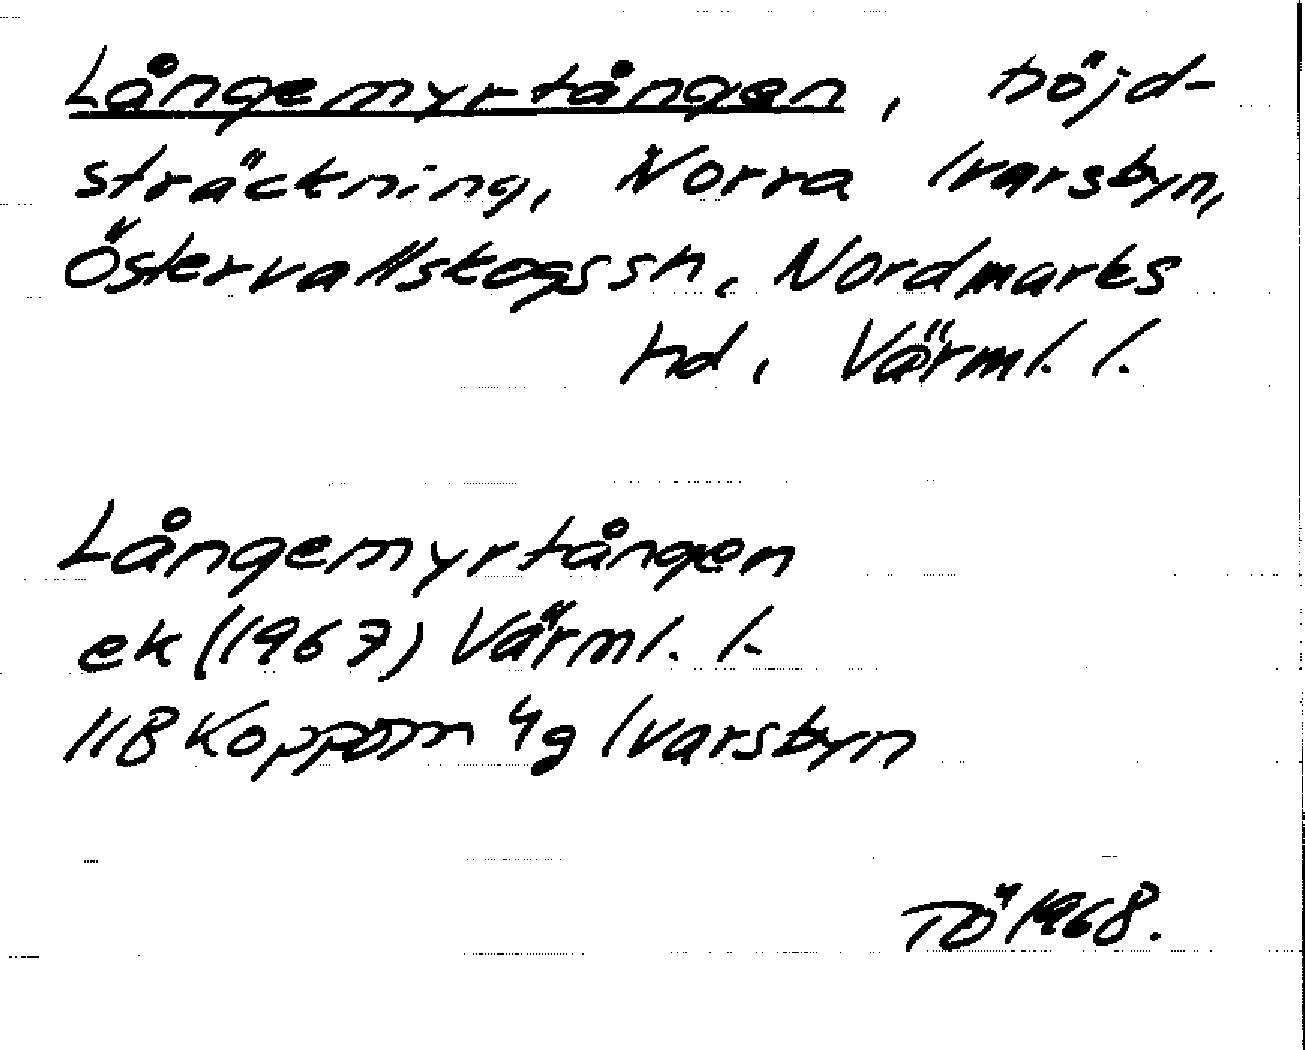 Långemyrtången, höjd-
sträckning, Norra Ivarsbyn,
Östervallskogs sn, Nordmarks
hd, Värml. l.
Långemyrtången
ek (1967) Värml. l.
11B Koppom 4g Ivarsbyn
TÖ 1968.